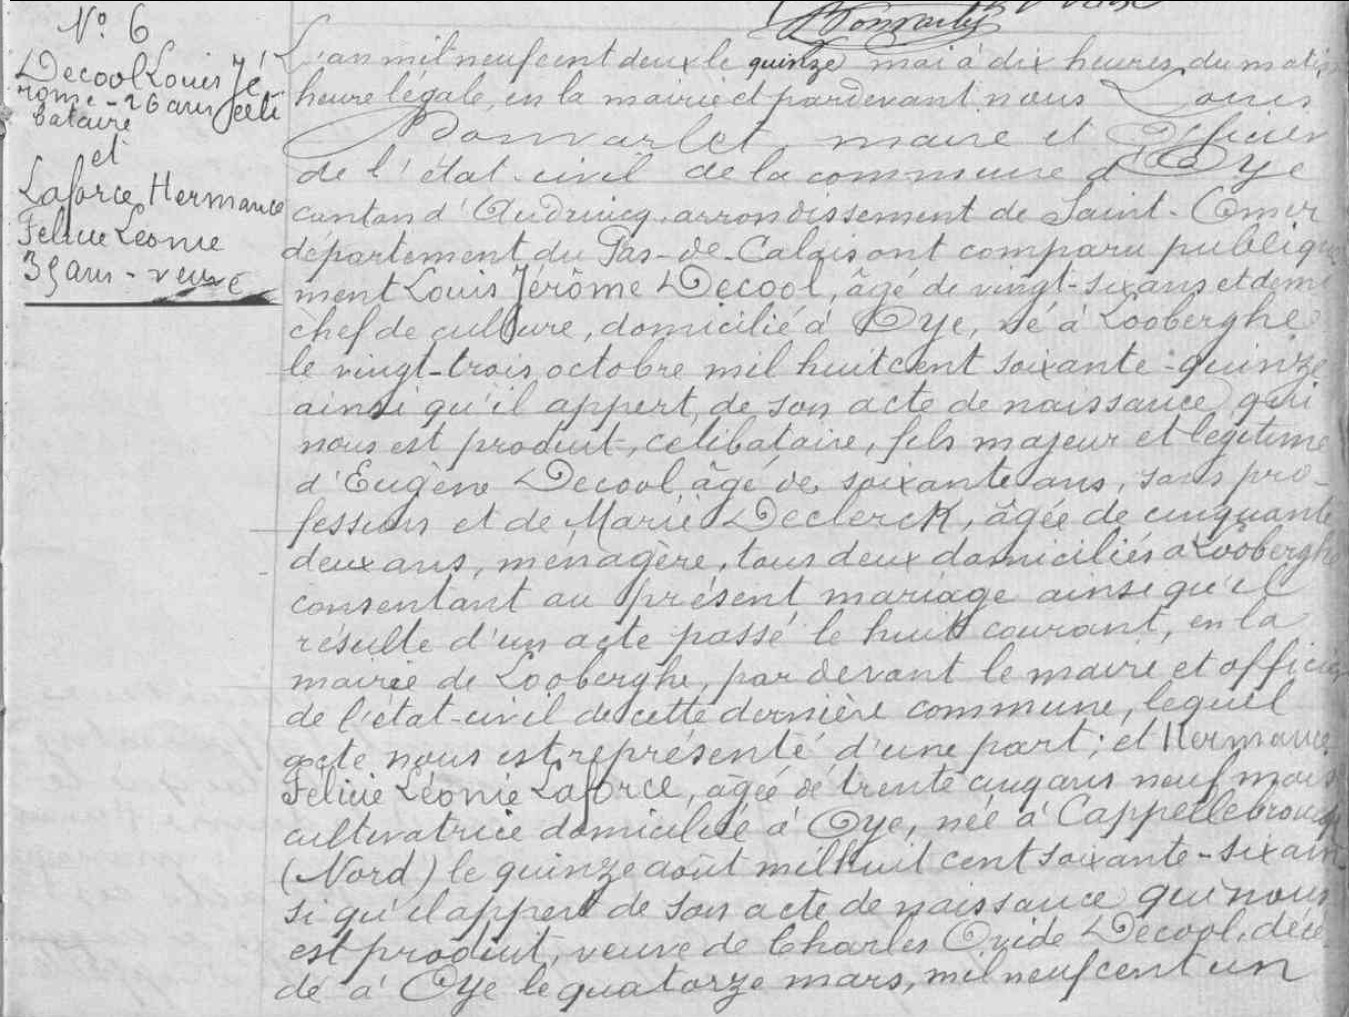 N° 6
Decool Louis Jé
rome - 26 ans Céli
bataire
et
Laforce Hermance
Felicie Léonie
35 ans - veuve
L'an mil neuf cent deux le quinze mai à dix heures du matin
heure légale, en la mairie et pardevant nous Louis
Donvarlet, maire et Officier
de l'état-civil de la commune d'Oye
canton d'Audruicq, arrondissement de Saint-Omer
département du Pas-de-Calais ont comparu publique
ment Louis Jérôme Decool, âgé de vingt-six ans et demi
chef de culture, domicilié à Oye, né à Looberghe
le vingt-trois octobre mil huit cent soixante-quinze
ainsi qu'il appert de son acte de naissance qui
nous est produit, célibataire, fils majeur et légitime
d'Eugène Decool, âgé de soixante ans, sans pro-
fession et de Marie Declerck, âgée de cinquante
deux ans, ménagère, tous deux domiciliés à Looberghe
consentant au présent mariage ainsi qu'il
résulte d'un acte passé le huit courant, en la
mairie de Looberghe, par devant le maire et officier
de l'état-civil de cette dernière commune, lequel
acte nous est représenté d'une part; et Hermance
Félicie Léonie Laforce, âgée de trente cinq ans neuf mois
cultivatrice domiciliée à Oye, née à Cappellebrouck
(Nord) le quinze août mil huit cent soixante-six ain
si qu'il appert de son acte de naissance qui nous
est produit, veuve de Charles Ovide Decool, décé
dé à Oye le quatorze mars, mil neuf cent un